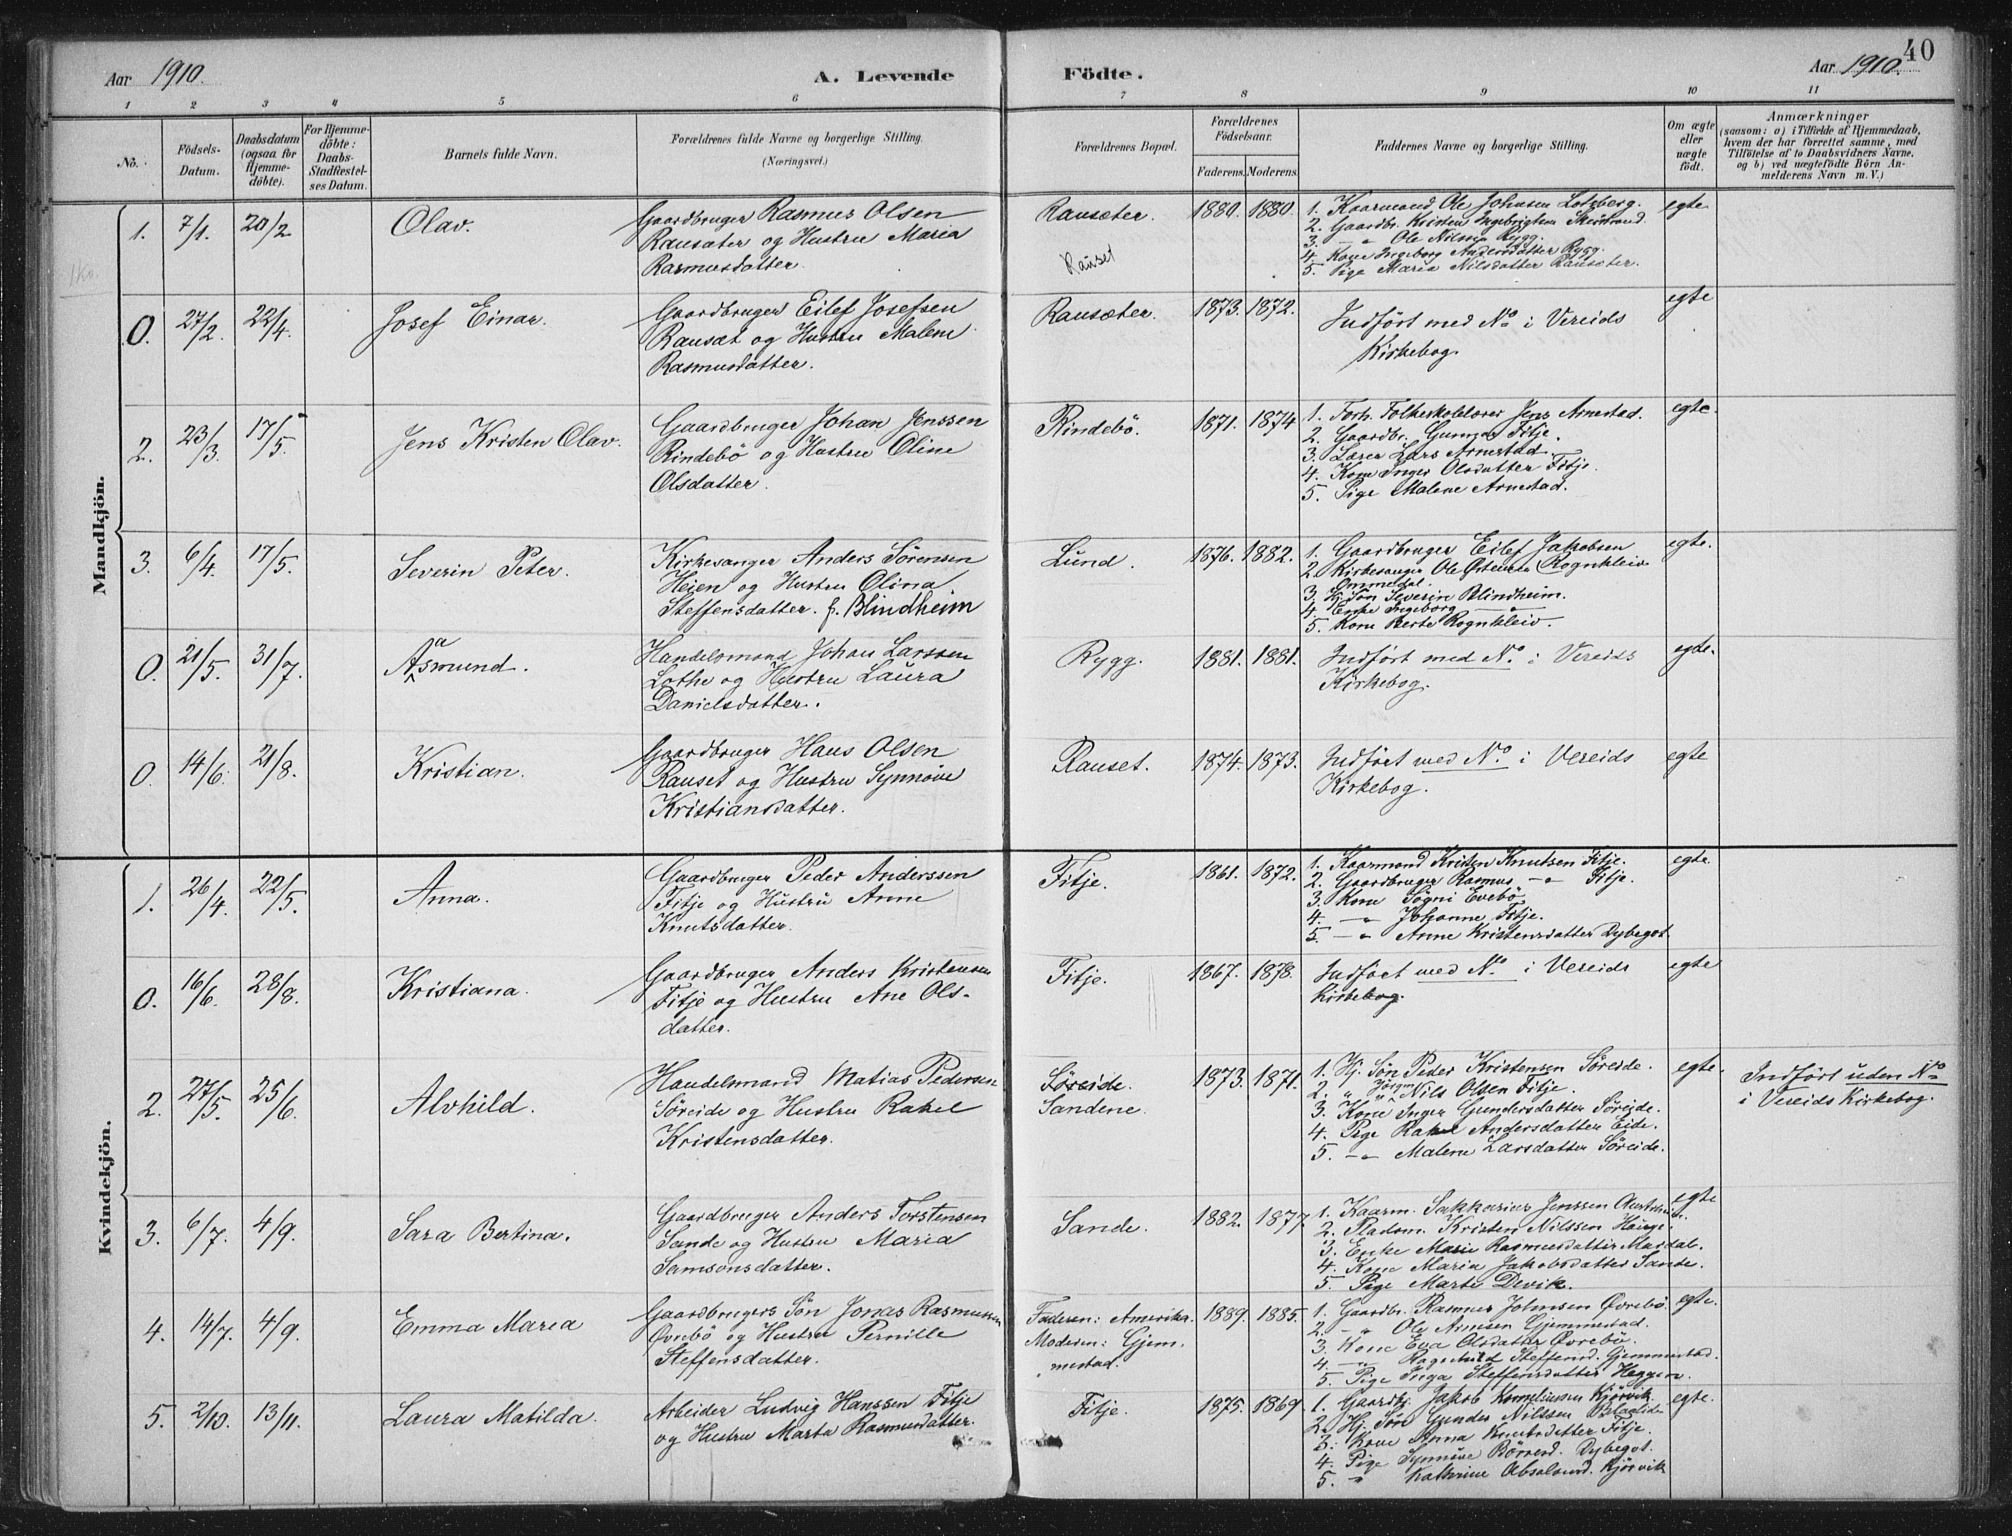 40
Aar 1910.
A. Levende Födte.
Aar 1910.
1 2 3 4 5 6 7 8 9 10 11
No.
Födsels-Datum.
Daabsdatum (ogsaa for Hjemme-döbte).
For Hjemme-döbte: Daabs-Stadfæstel-ses Datum.
Barnets fulde Navn.
Forældrenes fulde Navne og borgerlige Stilling.
(Næringsvei.)
Forældrenes Bopæl.
Forældrenes Födselsaar.
Faderens. Moderens.
Faddernes Navne og borgerlige Stilling.
Om ægte eller uægte födt.
Anmærkninger
(saasom: a) i Tilfælde af Hjemmedaab, hvem der har forrettet samme, med Tilföielse af to Daabsvidners Navne, og b) ved uægtefödte Börn An-melderens Navn m. V.)
Mandkjön.
1. 7/1. 20/2 Olav.
Gaardbruger Rasmus Olsen
Rausæter og Hustru Maria
Rasmusdatter.
Rausæter.
Rauset
1880. 1880.
1. Kaarmand Ole Johnsen Lotsberg.
2. Gaardbr. Kristen Ingebrigtsen
3. — " — Ole Nilssen Rygg.
4. Kone Ingeborg Andersdatter Rygg.
5. Pige Maria Nilsdatter Rausæter.
egte
0. 27/2. 22/4. Josef Einar.
Gaardbruger Eilef Josefsen
Rausæt og Hustru Malene
Rasmusdatter.
Rausæter.
1873. 1872.
Indført med No i Vereids
Kirkebog.
egte
2. 23/3. 17/5. Jens Kristen Olav.
Gaardbruger Johan Jenssen
Rindebö og Hustru Oline
Olsdatter.
Rindebö.
1871. 1874
1. Forh. Folkeskolelærer Jens Arnestad.
2. Gaardbr. Gunnar Fitje.
3. Lærer Lars Arnestad.
4. Kone Inger Olsdatter Fitje.
5. Pige Malene Arnestad.
egte.
3. 6/4. 17/5. Severin Peter.
Kirkesanger Anders Sörensen
Heien og Hustru Olina
Steffensdatter. f. Blindheim
Lund.
1876. 1882.
1. Gaardbruger Eilef Jakobsen
2. Kirkesanger Ole Østensen Rognkleiv
Ommedal.
3. Hj. Sön Severin Blindheim.
4. Enke Ingeborg — " —
5. Kone Berte Rognkleiv.
egte.
0. 21/5. 31/7. Aasmund.
Handelsmand Johan Larssen
Lothe og Hustru Laura
Danielsdatter.
Rygg.
1881. 1881.
Indført med No. i Vereids
Kirkebog.
egte.
0. 14/6. 21/8. Kristian.
Gaardbruger Hans Olsen
Rauset og Hustru Synnöve
Kristiansdatter.
Rauset.
1874. 1873.
Indført med No i Vereids
Kirkebog.
egte
Kvindekjön.
1. 26/4. 22/5. Anna.
Gaardbruger Peder Anderssen
Fitje og Hustru Anne
Knutsdatter.
Fitje.
1861. 1872.
1. Kaarmand Kristen Knutsen Fitje.
2. Gaardbruger Rasmus — " — Fitje.
3. Kone Sögni Evebö
4. — " — Johanne Fitje.
5. — " — Anne Kristensdatter Rygeget
egte
0. 16/6. 28/8. Kristiana.
Gaardbruger Anders Kristensen
Fitje og Hustru Ane Ols-
datter.
Fitje.
1867. 1878.
Indført med No. i Vereids
Kirkebog.
egte
2. 27/5. 25/6. Alvhild.
Handelsmand Matias Pedersen
Söreide og Hustru Rakel
Kristensdatter.
Söreide.
Sandene.
1873. 1871.
1. Hj. Sön Peder Kristensen Söreide.
2. " " Jörgen Nils Olsen Fitje.
3. Kone Inger Gundersdatter Söreide.
4. Pige Rakel Andersdatter Eide.
5. — " — Malene Larsdatter Söreide.
egte.
Indført uden No
i Vereids Kirkebog.
3. 6/7. 4/9. Sara Bertina.
Gaardbruger Anders Torstensen
Sande og Hustru Maria
Samsonsdatter.
Sande.
1882. 1877.
1. Kaarm. Sakkarias Jenssen
2. Pladsm. Kristen Nilssen Hauge.
3. Enke Marie Rasmusdatter Mardal.
4. Kone Maria Jakobsdatter Sande.
5. Pige Marte Devik.
egte
4. 14/7. 4/9. Emma Maria
Gaardbrugers Sön Jonas Rasmussen
Övrebö og Hustru Pernille
Steffensdatter.
Faderen: Amerika.
Moderen: Gjem-
mestad.
1889. 1885.
1. Gaardbr. Rasmus Johnsen Övrebö.
2. — " — Ole Arnesen Gjemmestad.
3. Kone Eva Olsdatter Övrebö.
4. — " — Ragnhild Steffensd. Gjemmestad.
5. Pige Inga Steffensdatter Heggen.
egte.
5. 2/10. 13/11. Laura Matilda.
Arbeider Ludvig Hanssen Fitje
og Hustru Marta Rasmusdatter.
Fitje.
1875. 1869.
1. Gaardbr. Jakob Korneliussen Kjörvik
2. Hj. Sön Gunder Nilssen
3. Kone Anna Knutsdatter Fitje.
4. Pige Synnöve Börresd.
5. " Kathrine Absalonsd. Kjörvik
egte.